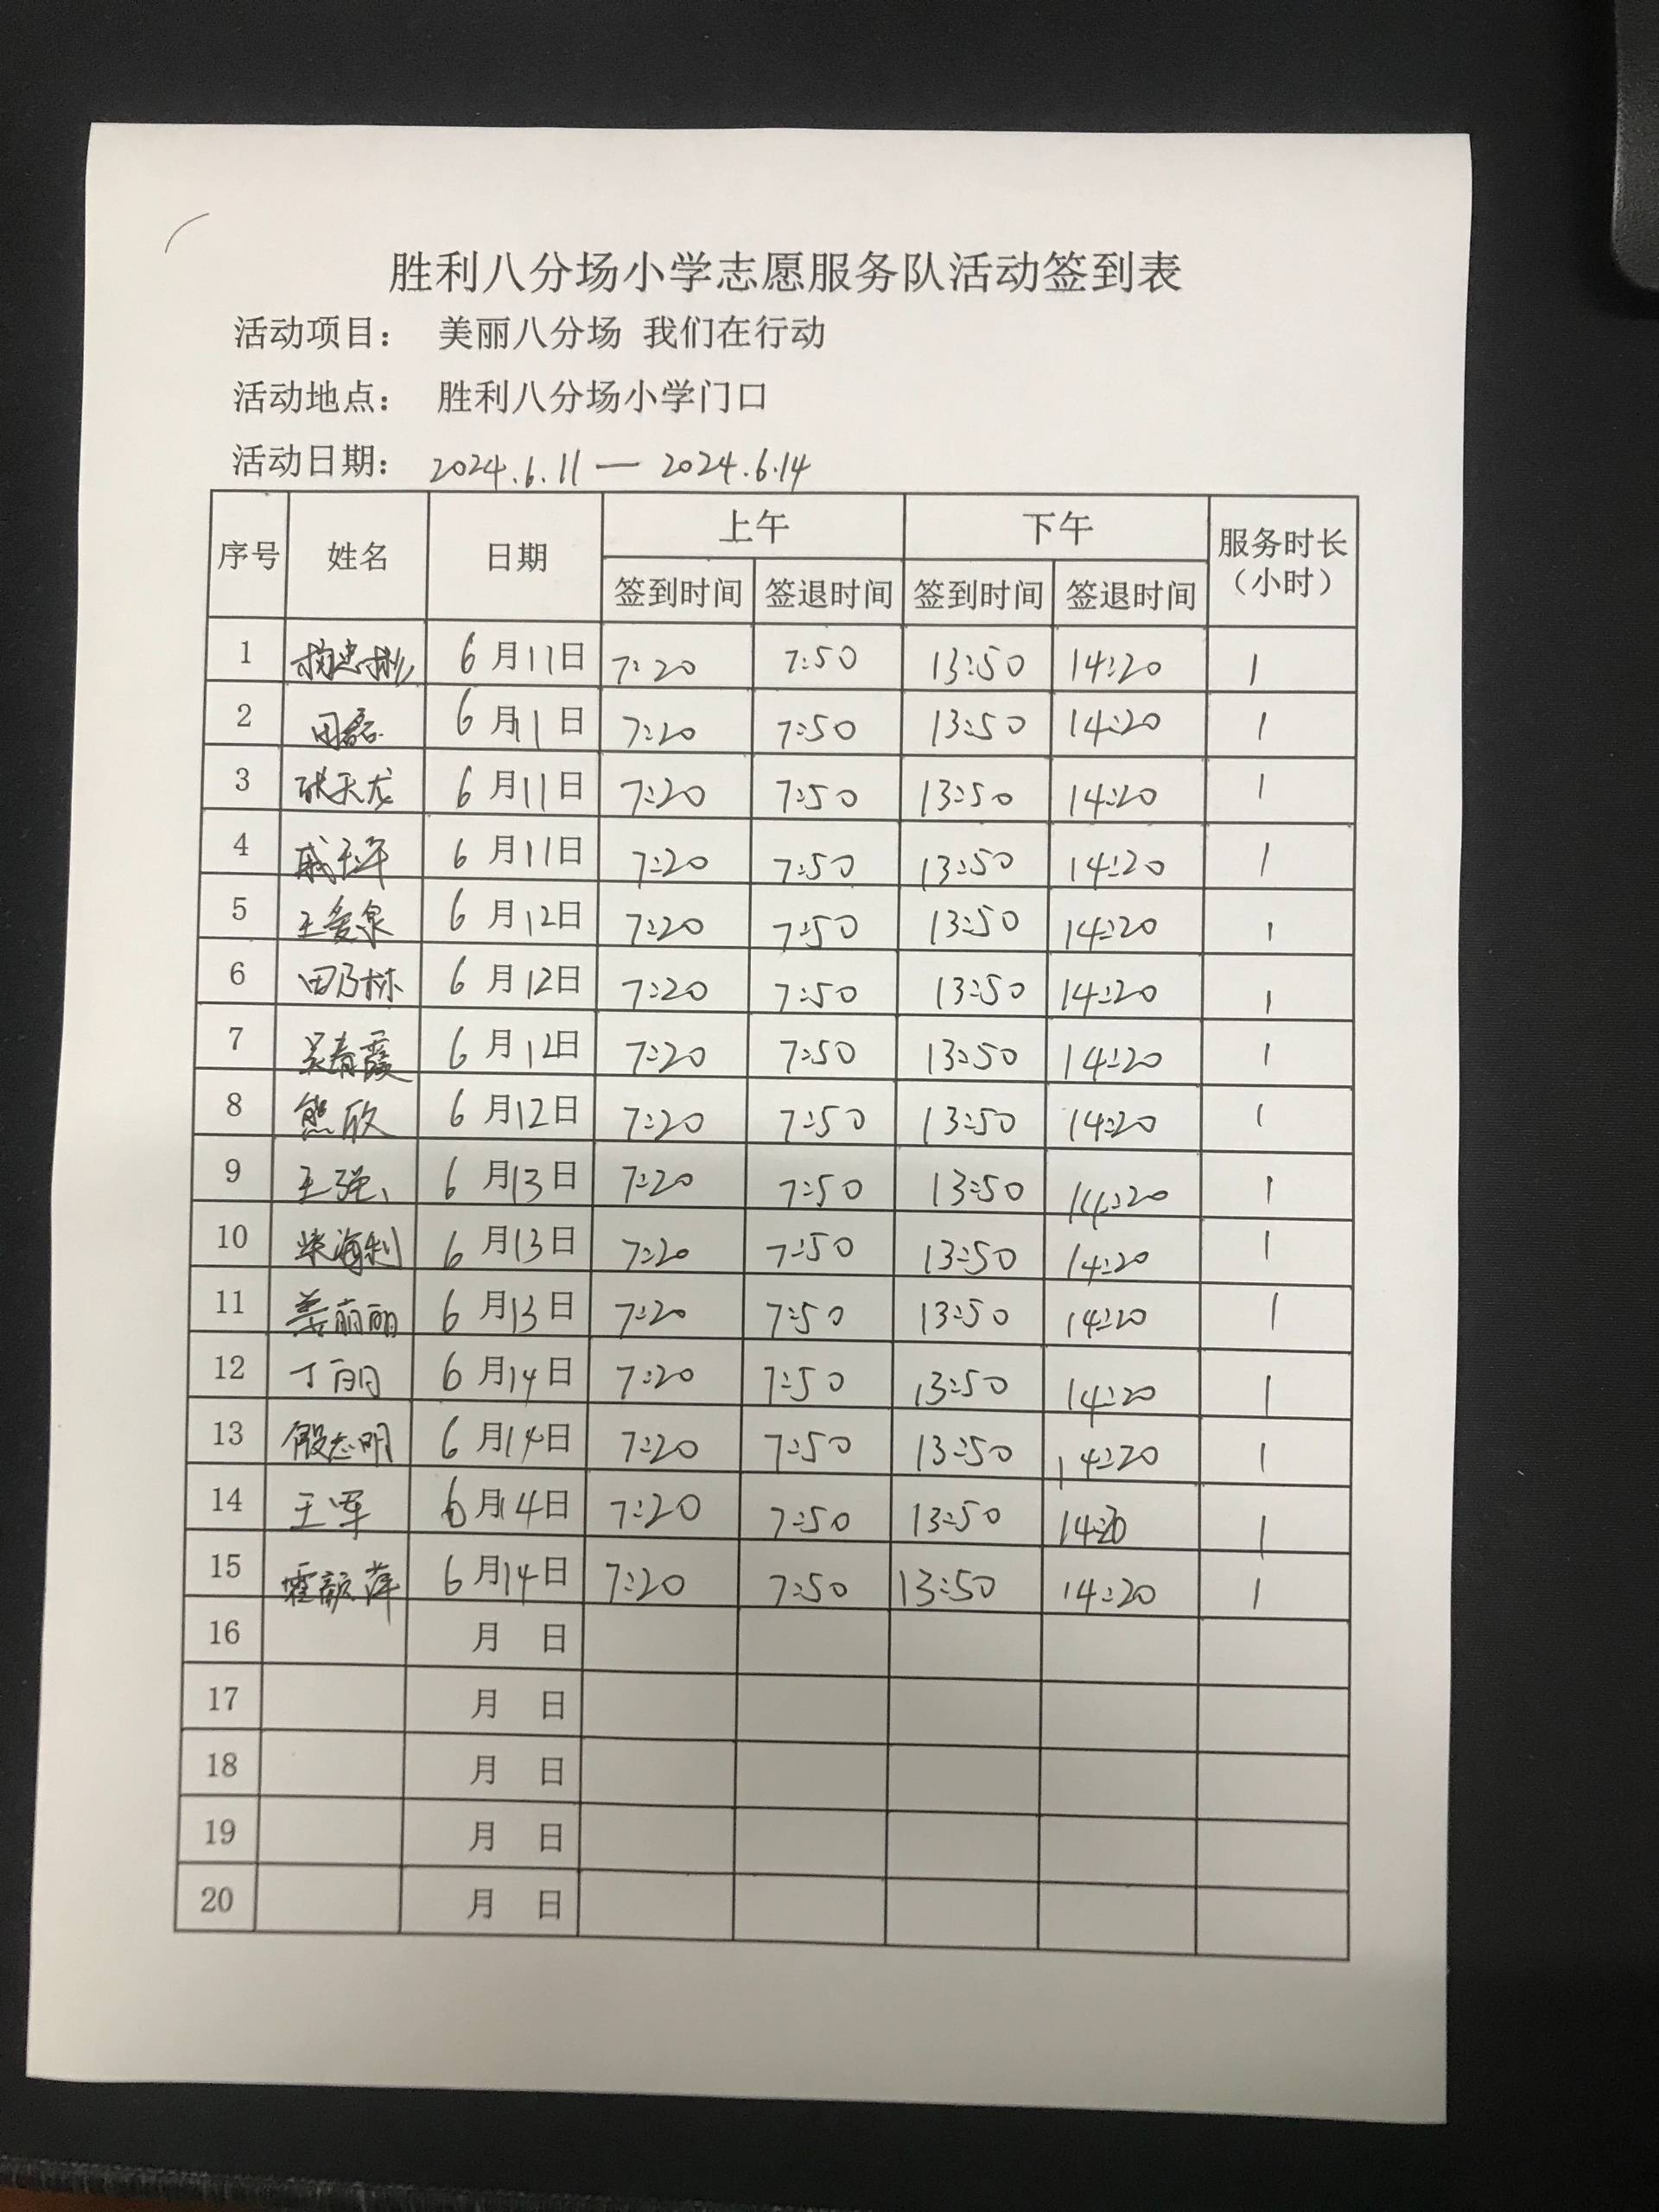 胜利八分场小学志愿服务队活动签到表
活动项目： 美丽八分场 我们在行动
活动地点： 胜利八分场小学门口
活动日期： 2024.6.11 — 2024.6.14
序号 姓名 日期 上午 下午 服务时长（小时）
签到时间 签退时间 签到时间 签退时间
1 6月11日 7:20 7:50 13:50 14:20 1
2 田磊 6月11日 7:20 7:50 13:50 14:20 1
3 张天龙 6月11日 7:20 7:50 13:50 14:20 1
4 6月11日 7:20 7:50 13:50 14:20 1
5 王爱泉 6月12日 7:20 7:50 13:50 14:20 1
6 田乃林 6月12日 7:20 7:50 13:50 14:20 1
7 吴春霞 6月12日 7:20 7:50 13:50 14:20 1
8 熊欣 6月12日 7:20 7:50 13:50 14:20 1
9 王强 6月13日 7:20 7:50 13:50 14:20 1
10 柴海利 6月13日 7:20 7:50 13:50 14:20 1
11 姜丽丽 6月13日 7:20 7:50 13:50 14:20 1
12 丁丽 6月14日 7:20 7:50 13:50 14:20 1
13 殷志明 6月14日 7:20 7:50 13:50 14:20 1
14 王军 6月14日 7:20 7:50 13:50 14:20 1
15 6月14日 7:20 7:50 13:50 14:20 1
16 月 日
17 月 日
18 月 日
19 月 日
20 月 日